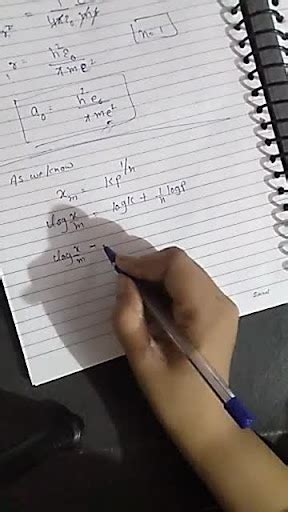 n = 1
r = h²ε₀ / πme²
a₀ = h²ε₀ / πme²
As we know
x/m = kp^1/n
log x/m = log k + 1/n log P
log x/m =